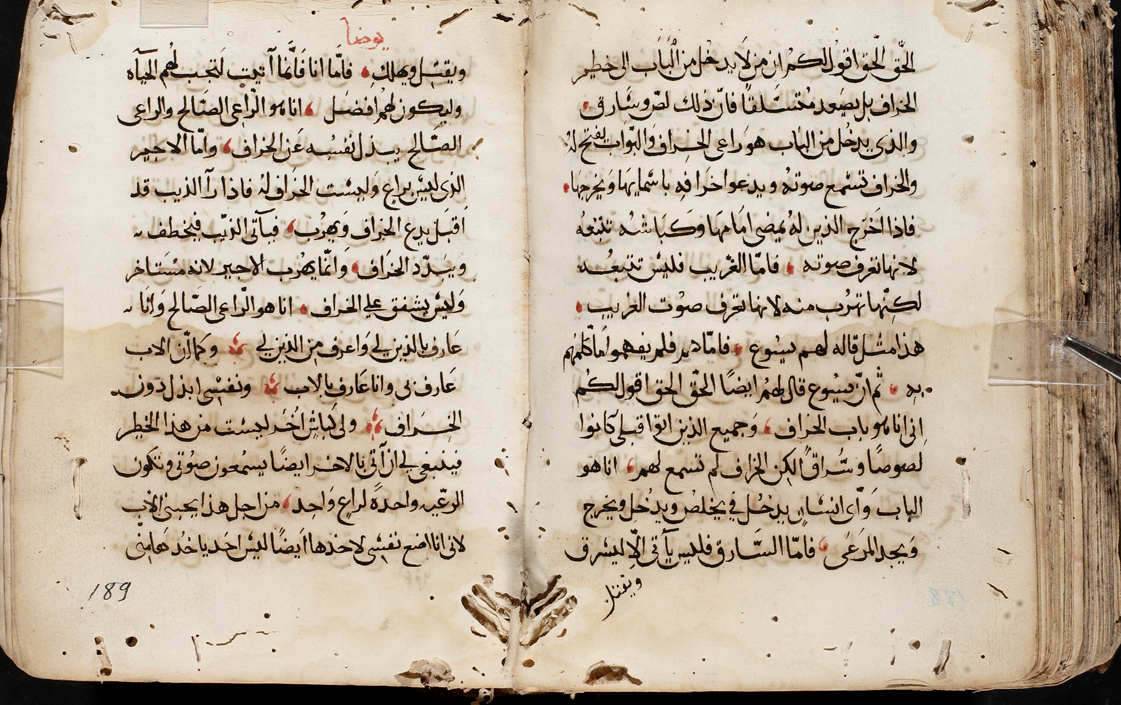 الحق الحق اقول لكم ان من لا يدخل من الباب الى حظير
الخراف بل يصعد متسلقا فان ذلك لص وسارق
والذي يدخل من الباب هو راعى الخراف والبواب يفتح له
والخراف تسمع صوته ويدعوا خرافه باسمايها ويخرجها
فاذا اخرج الذين له يمضى امامها وكباشه تتبعه
لانها تعرف صوته فاما الغريب فليس تتبعه
لكنها تهرب منه لانها لا تعرف صوت الغريب
هذا مثل قاله لهم يسوع فاما هم فلم يفهموا ما كلمهم
به ثم ان يسوع قال لهم ايضًا الحق الحق اقول لكم
انى انا هو باب الخراف وجميع الذين اتوا قبلى كانوا
لصوصًا وسراقًا لكن الخراف لم تسمع لهم انا هو
الباب واى انسان يدخل في يخلص ويدخل ويخرج
ويجد المرعى فاما السارق فليس يأتى الا ليسرق
ويقتل
يوحنا
ويقتل ويهلك فاما انا فانما أتيت لتجب لهم الحيآه
وليكون لهم افضل انا هو الراعى الصالح والراعى
الصالح يبذل نفسه عن الخراف واما الاجير
الذى ليس براع وليست الخراف له فاذا رآ الذيب قد
اقبل يدع الخراف ويهرب فيأتى الذيب فيخطف
ويبدد الخراف وانما يهرب الاجير لانه مستاجر
وليس يشفق على الخراف انا هو الراعى الصالح وانا
عارف بالذين لي واعرف من الذين لي وكما ان الاب
عارف بى وانا عارف بالاب ونفسى ابذل دون
الخراف ولى كباش اُخَر ليست من هذا الحظير
فينبغى لي ان آتى بالاخر ايضًا يسمعون صوتى وتكون
الرعيه واحدة لراع واحد من اجل هذا يحبنى الاب
لانى انا اضع نفسى لاخذها ايضًا ليس احد ياخذها منى
189